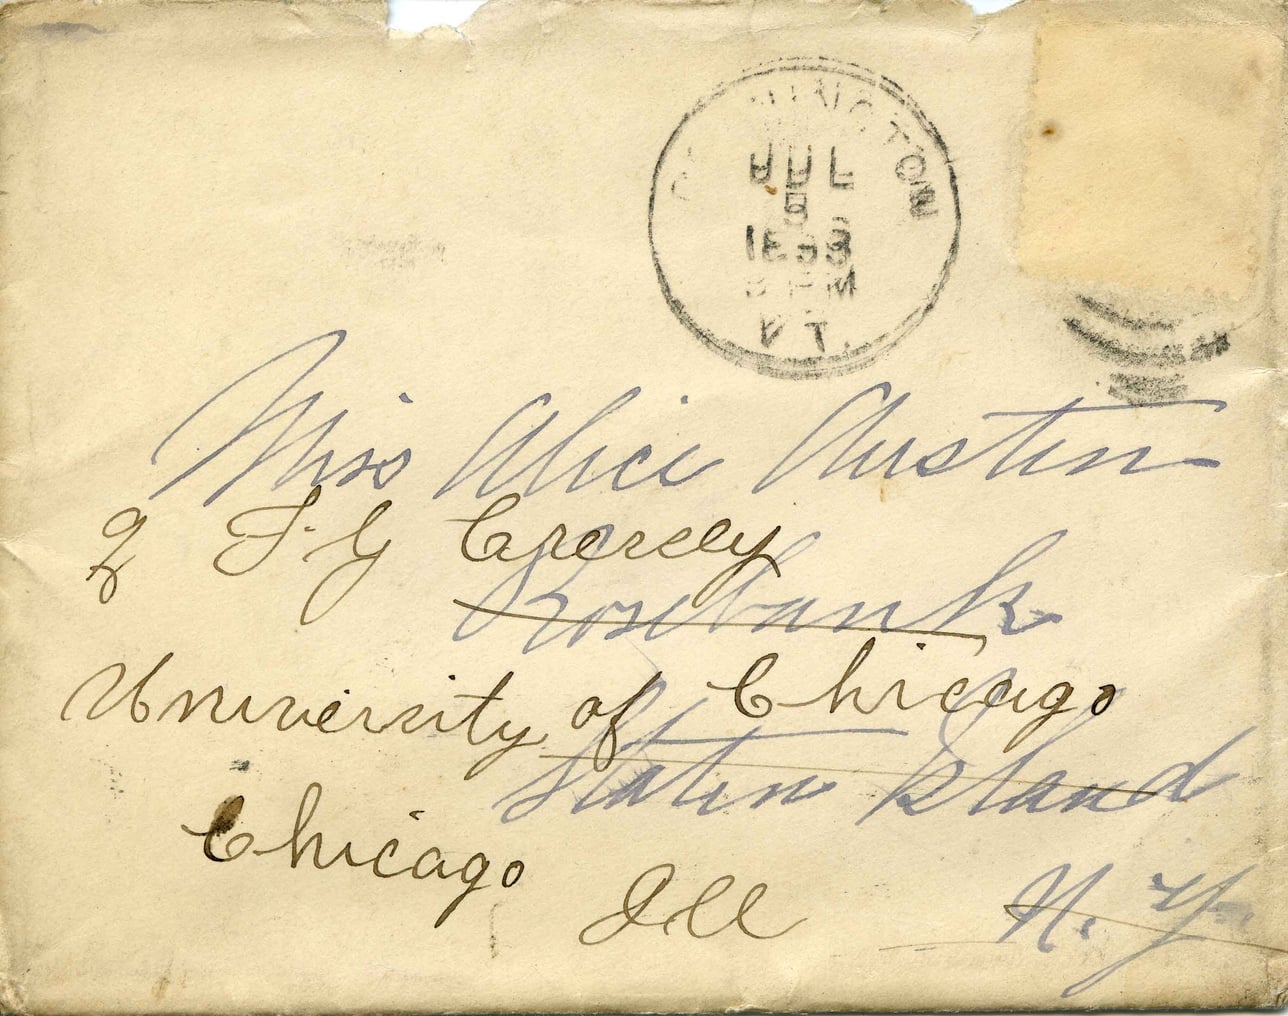 JUL
1893
PM
VT.
Miss Alice Austin
F. G.
Rosebank
University of Chicago
Staten Island
Chicago
Ill
N. Y.